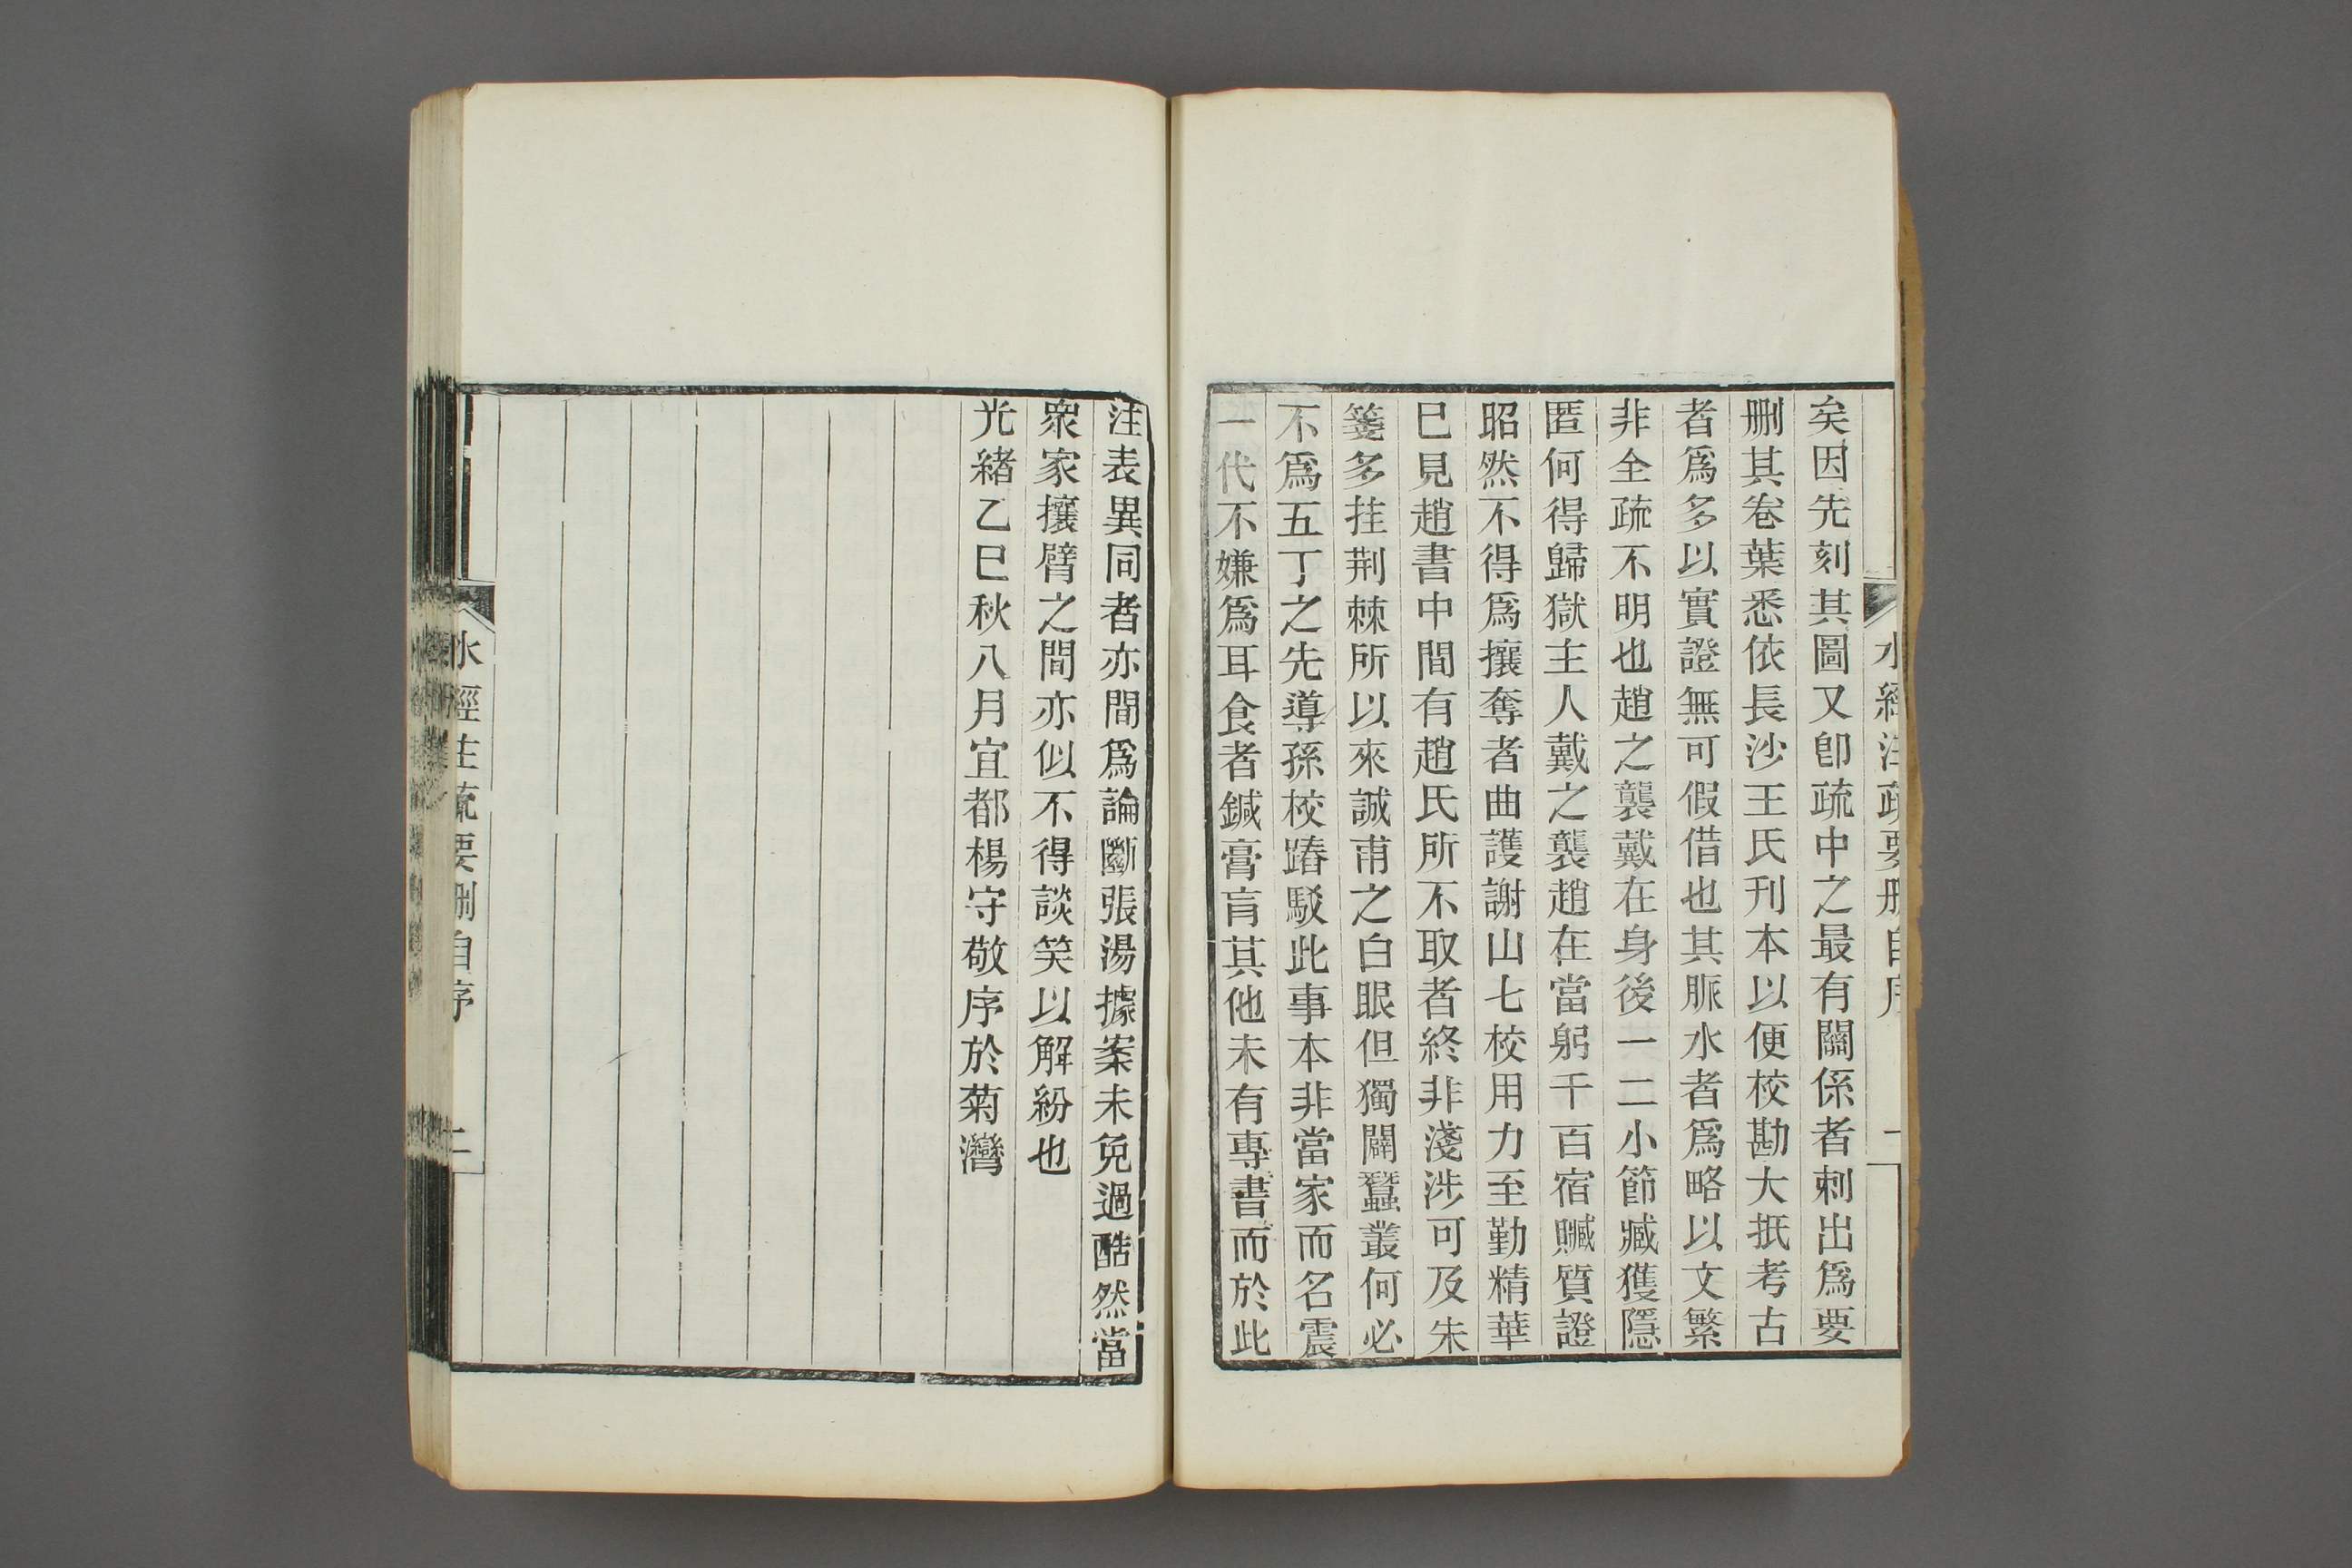 水經注疏要刪自序
一
矣因先刻其圖又卽疏中之最有關係者刺出爲要
刪其卷葉悉依長沙王氏刊本以便校勘大抵考古
者爲多以實證無可假借也其脈水者爲略以文繁
非全疏不明也趙之襲戴在身後一二小節臧獲隱
匿何得歸獄主人戴之襲趙在當躬千百宿贓質證
昭然不得爲攘奪者曲護謝山七校用力至勤精華
巳見趙書中間有趙氏所不取者終非淺涉可及朱
箋多挂荆棘所以來誠甫之白眼但獨闢蠶叢何必
不爲五丁之先導孫校踳駁此事本非當家而名震
一代不嫌爲耳食者鍼膏肓其他未有專書而於此
注表異同者亦間爲論斷張湯據案未免過酷然當
衆家攘臂之間亦似不得談笑以解紛也
光緒乙巳秋八月宜都楊守敬序於菊灣
水經注疏要刪自序
二